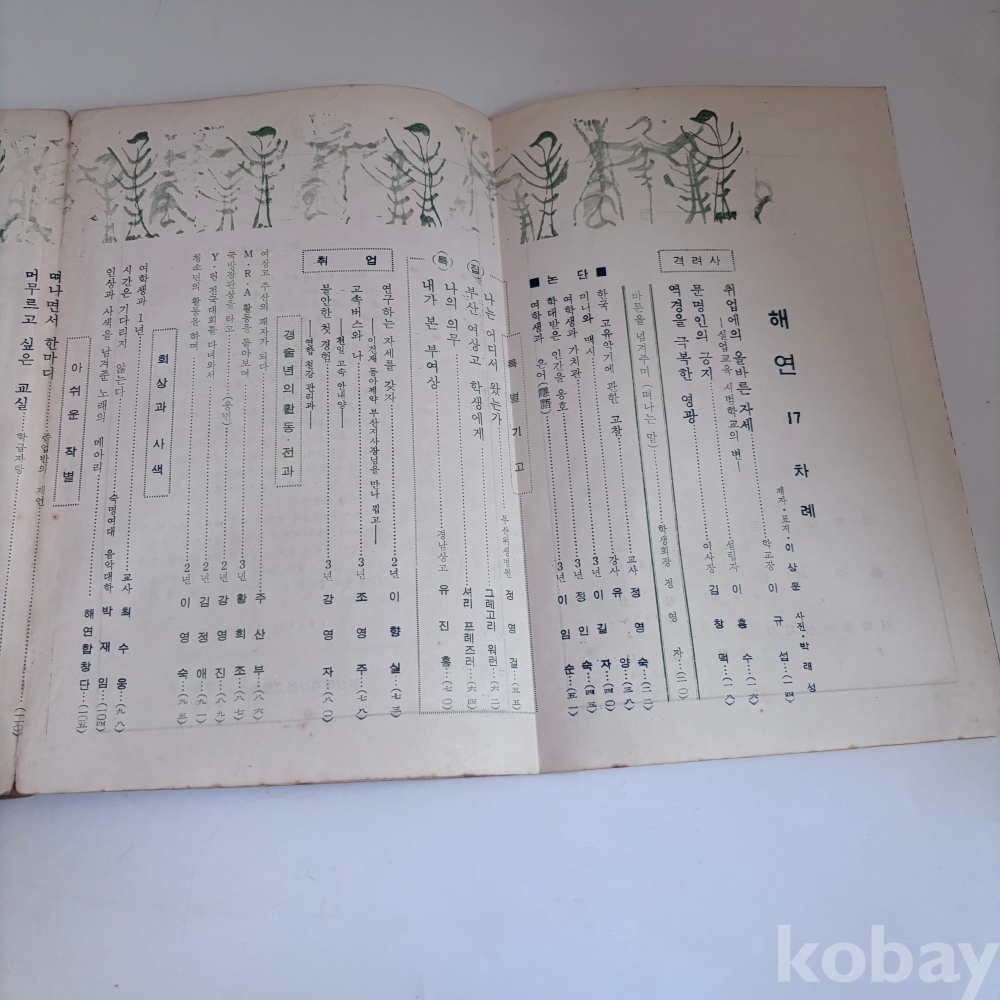 해연 17 차례
제자·표지·이상문 사진·박래성
격려사
취업에의 올바른 자세……학교장 이규섭…(一四)
―실업교육 시범학교의 변―
문명인의 긍지……설립자 이흥수…(一六)
역경을 극복한 영광……이사장 김창먹…(一八)
바톤을 넘겨주며 (떠나는 말)……학생회장 정영자…(二〇)
논단
■ 한국 고유악기에 관한 고찰……교사 정영숙…(二二)
미니와 맥시……강사 유양…(三八)
여학생과 가치관……3년 이길자…(四四)
학대받은 인간을 옹호……3년 정인숙…(四五)
■ 여학생과 은어(隱語)……3년 이임순…(五一)
특별기고
나는 어디서 왔는가……부산위생병원 정영걸…(五五)
(특집)
부산여상고 학생에게……그레고리 워런…(六二)
나의 의무……셔리 프레즈러…(六四)
내가 본 부여상……경남상고 유진홍…(七〇)
취업
연구하는 자세를 갖자……2년 이향실…(七三)
――이진재 동아제약 부산지사장님을 만나 뵙고――
고속버스와 나……3년 조영주…(七八)
――천일 고속 안내양――
불안한 첫 경험……3년 강영자…(八〇)
――연합 철강 관리과――
경술년의 활동·전과
여상고 주산의 패자가 되다……주산부…(八六)
M·R·A 활동을 돌아보며……3년 황희조…(八七)
국방장관상을 타고…(웅변)……2년 강영진…(八九)
Y·틴 전국대회를 다녀와서……2년 김정애…(九一)
청소년의 활동을 하며……2년 이영숙…(九五)
회상과 사색
여학생과 1년
시간은 기다리지 않는다……교사 최수웅…(九八)
인상과 사색을 남겨준 노래의 메아리……숙명여대 음악대학 박재임…(一〇四)
해연합창단…(一〇五)
아쉬운 작별
떠나면서 한마디……졸업반의 제언
머무르고 싶은 교실……학급자랑
kobay